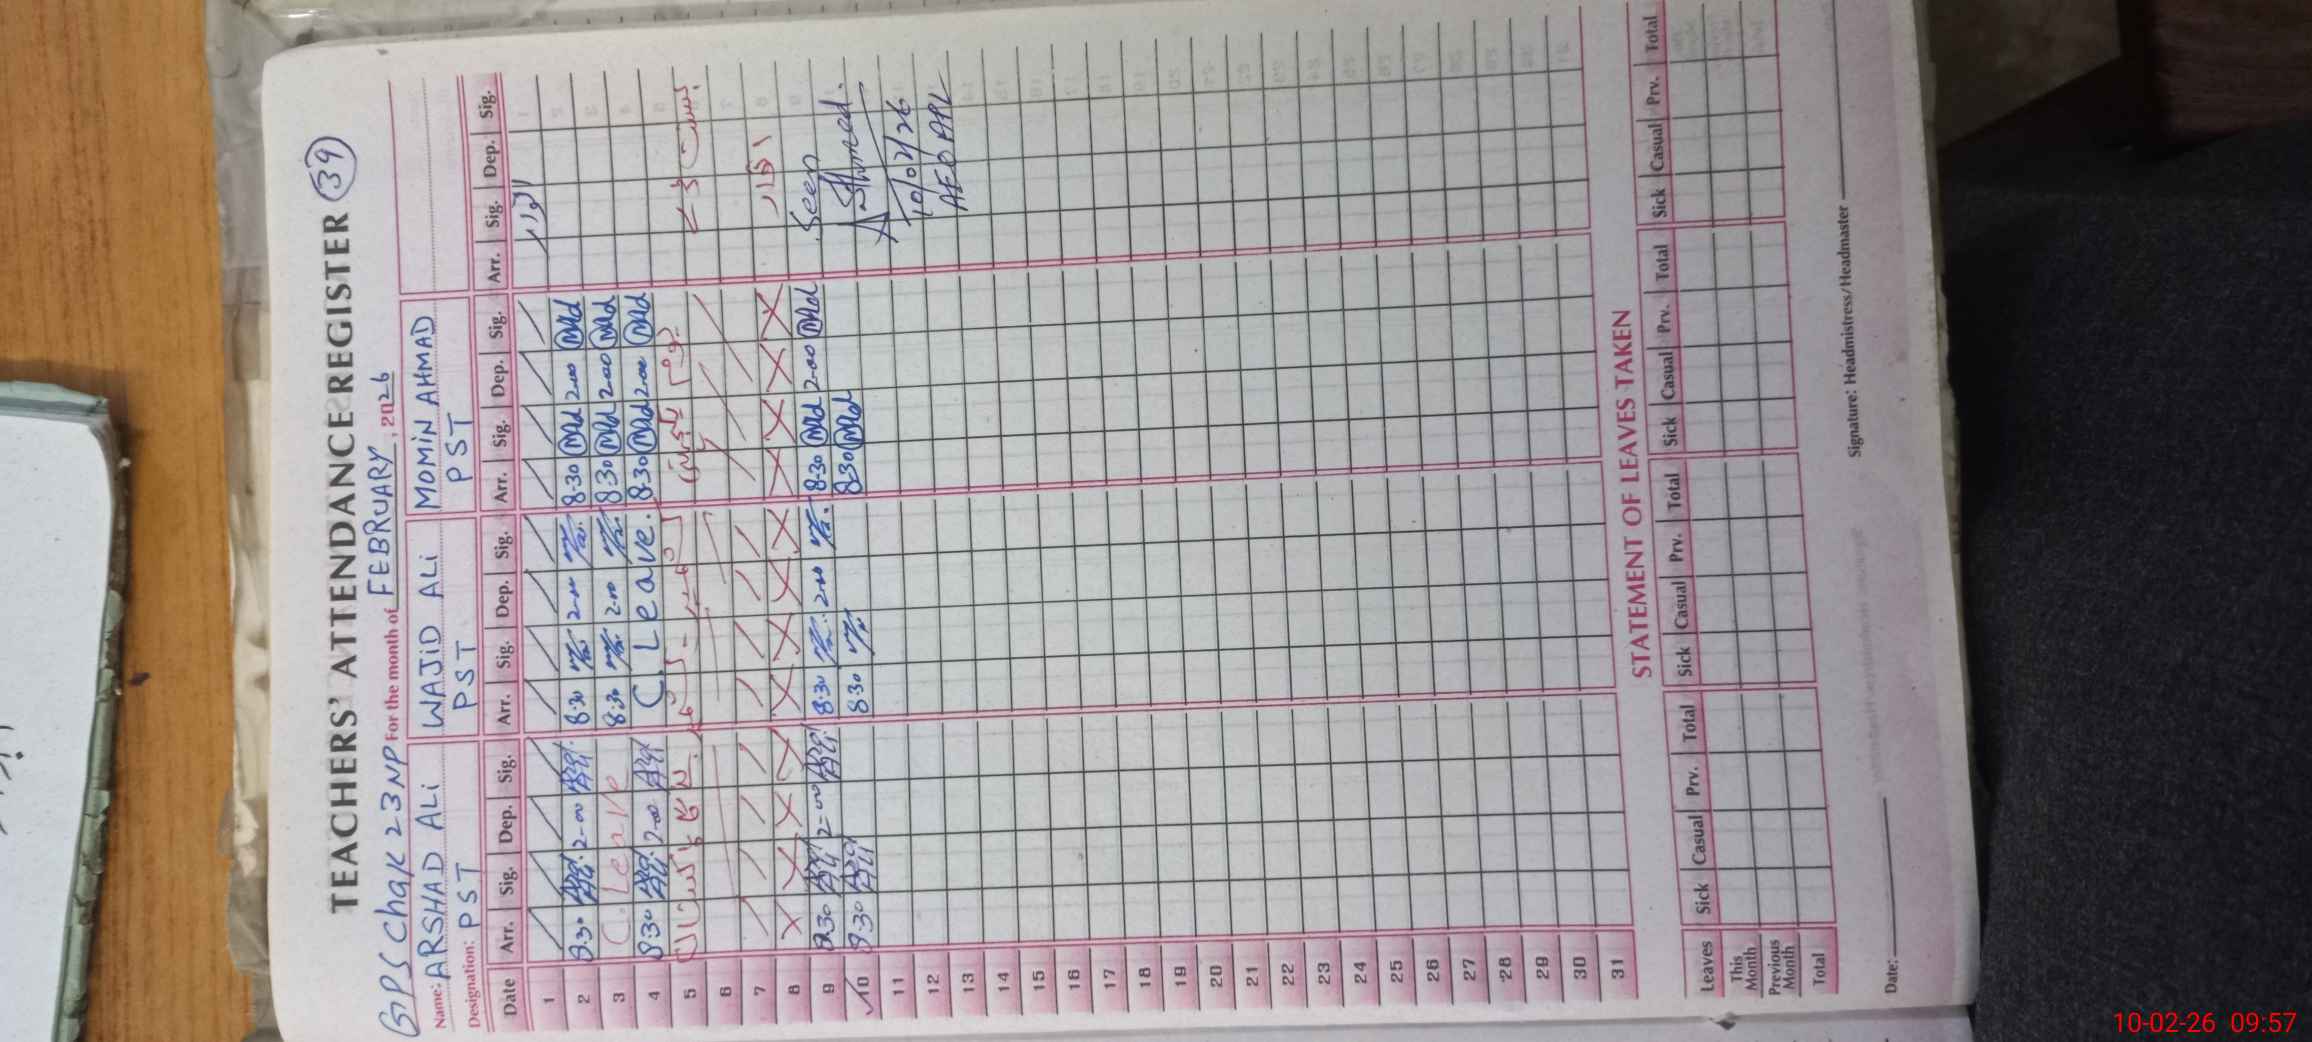 TEACHERS' ATTENDANCE REGISTER 39
GPS Chak 23NP For the month of FEBRUARY, 2026
Name: ARSHAD ALi WAJiD ALi MOMiN AHMAD
Designation: PST PST PST
Date Arr. Sig. Dep. Sig. Arr. Sig. Dep. Sig. Arr. Sig. Dep. Sig. Arr. Sig. Dep. Sig.
1 اتوار
2 8:30 2-00 8:30 2-00 8:30 2-00
3 C. Leave 8:30 2-00 8:30 2-00
4 8:30 2-00 C. Leave. 8:30 2-00
5
6
7
8 اتوار
9 8:30 2-00 8:30 2-00 8:30 2-00 Seen
10 8:30 8:30 8:30 Ahmed.
11 10/02/26
12 AEO
13
14
15
16
17
18
19
20
21
22
23
24
25
26
27
28
29
30
31
STATEMENT OF LEAVES TAKEN
Leaves Sick Casual Prv. Total Sick Casual Prv. Total Sick Casual Prv. Total Sick Casual Prv. Total
This Month
Previous Month
Total
Date: Signature: Headmistress/Headmaster
10-02-26 09:57